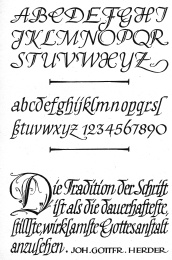 ABCDEFGHI
JKLMNOPQR
STUVWXYZ
abcdefghijklmnopqrsſ
ßtuvwxyz 1234567890
Die Tradition der Schrift
ist als die dauerhafteste,
stillste, wirksamste Gottesanstalt
anzusehen. JOH. GOTTFR. HERDER